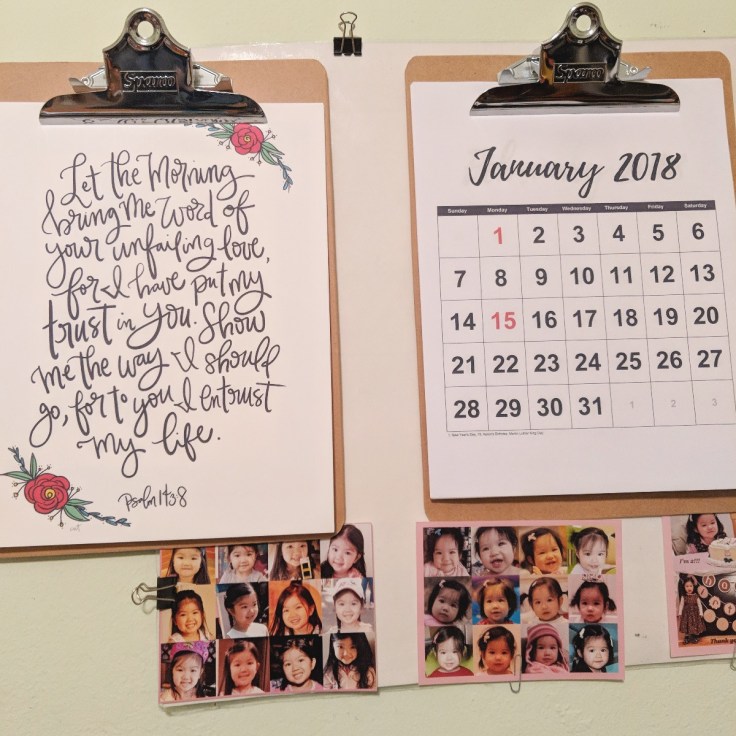 Sparco
Let the Morning
bring me word of
your unfailing love,
for I have put my
trust in you. Show
me the way I should
go, for to you I entrust
my life.
Psalm 143:8
Sparco
January 2018
Sunday Monday Tuesday Wednesday Thursday Friday Saturday
1 2 3 4 5 6
7 8 9 10 11 12 13
14 15 16 17 18 19 20
21 22 23 24 25 26 27
28 29 30 31 1 2 3
Thank you